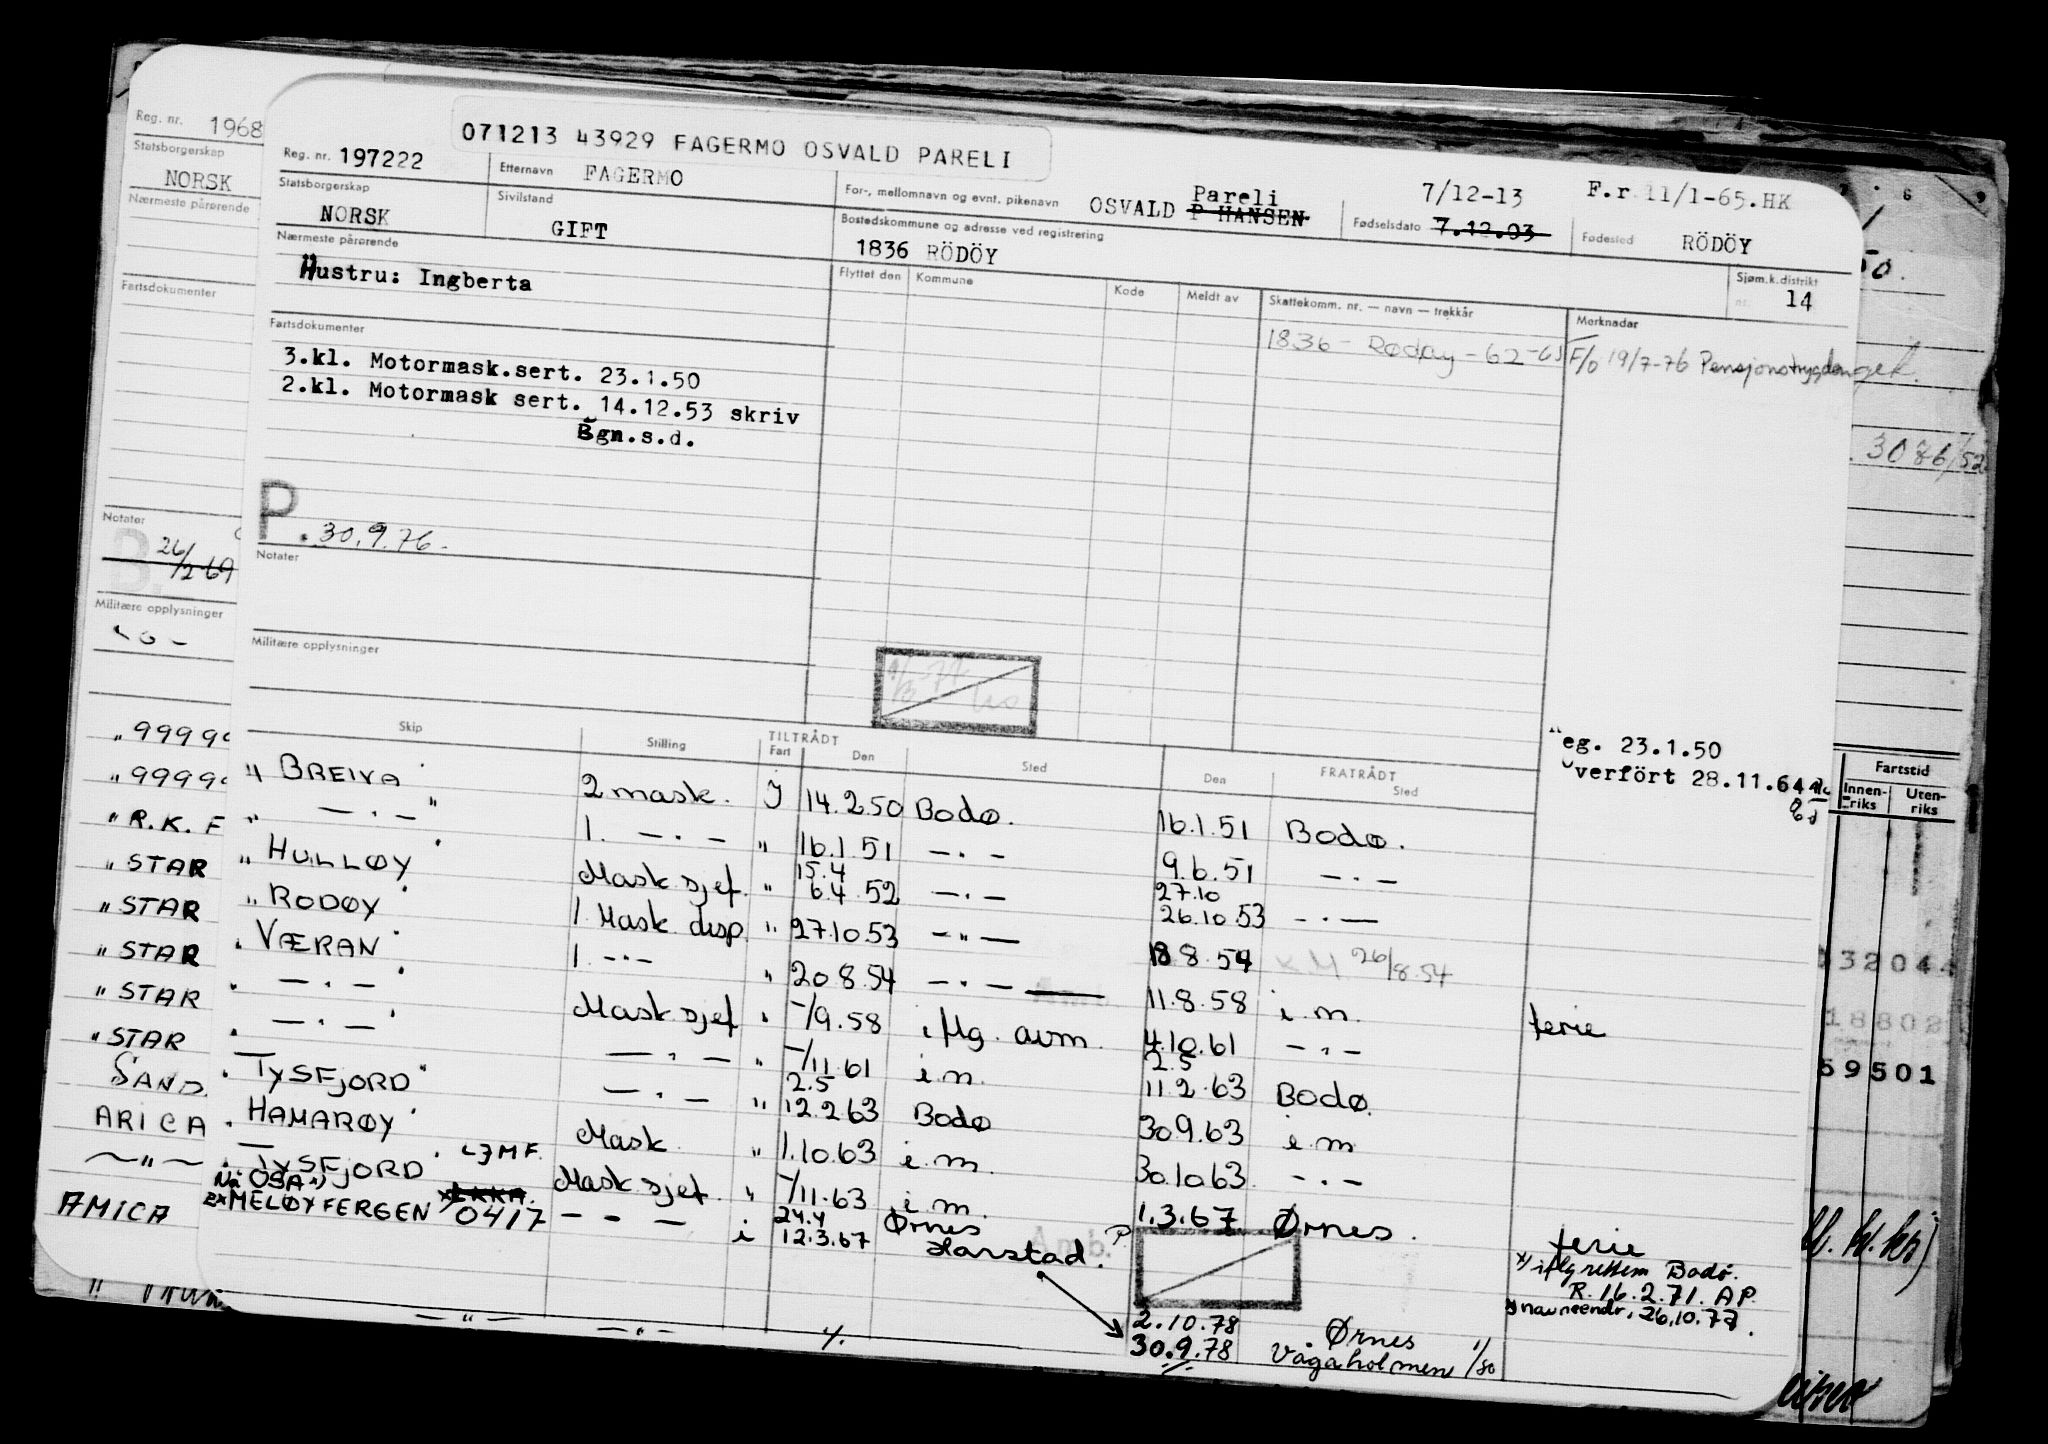 071213 43929 FAGERMO OSVALD PARELI
Reg. nr. 197222
Etternavn FAGERMO
For-, mellomnavn og evnt. pikenavn OSVALD P HANSEN Pareli
7/12-13
Fødselsdato 7.12.03
F.r 11/1-65.HK
Fødested RÖDÖY
Statsborgerskap NORSK
Sivilstand GIFT
Bostedskommune og adresse ved registrering
1836 RÖDÖY
Sjøm.k.distrikt
nr. 14
Nærmeste pårørende
Hustru: Ingberta
Flyttet den Kommune Kode Meldt av Skattekomm. nr. — navn — trekkår Merknader
1836 - Rødøy - 62-63
F/o 19/7-76 Pensjonstrygden
Fartsdokumenter
3.kl. Motormask.sert. 23.1.50
2.kl. Motormask sert. 14.12.53 skriv
Bgn.s.d.
P. 30.9.76.
Notater
Militære opplysninger
eg. 23.1.50
verfört 28.11.64
Skip Stilling TILTRÅDT Fart Den Sted FRATRÅDT Den Sted
" BREIVA " 2 mask. J 14.2.50 Bodø. 16.1.51 Bodø.
" — . — " 1. — . — " 16.1.51 — . — 9.6.51 — . —
15.4 27.10
" HULLØY " Mask sjef. " 6.4.52 — . — 26.10.53 — . —
" RODØY " 1. Mask disp. " 27.10.53 — " — 18.8.54 26/8.54
" VÆRAN " 1. — . — " 20.8.54 — . — 11.8.58 i.m. ferie
" — . — " Mask sjef " -/9.58 i flg. avm. 4.10.61 — . —
2.5
" — . — " — . — " -/11.61 i.m. 11.2.63 Bodø.
2.5
" TYSFJORD " — . — " 12.2.63 Bodø 30.9.63 i.m
" HAMARØY " Mask. " 1.10.63 i.m. 30.10.63 — . —
" TYSFJORD " LJMF. Mask sjef. " -/11.63 i.m. 1.3.67 Ørnes. ferie
Nå OSA
24.4 Ørnes
ex MELØYFERGEN 0417 — - — i 12.3.67 Harstad.
x) iflg rettem Bodø.
R. 16.2.71. AP.
navneendr. 26.10.77.
2.10.78 Ørnes
— " — — . — 30.9.78 Vågaholmen 1/80
Reg. nr. 1968
Statsborgerskap
NORSK
Nærmeste pårørende
Fartsdokumenter
Notater
26/2-69
Militære opplysninger
" 9999
" 9999
" R.K. F
" STAR
" STAR
" STAR
" STAR
" STAR
SAND.
ARICA
— " —
AMICA
50.
3086/52
Fartstid
Innen-riks Uten-riks
32044
18802
59501